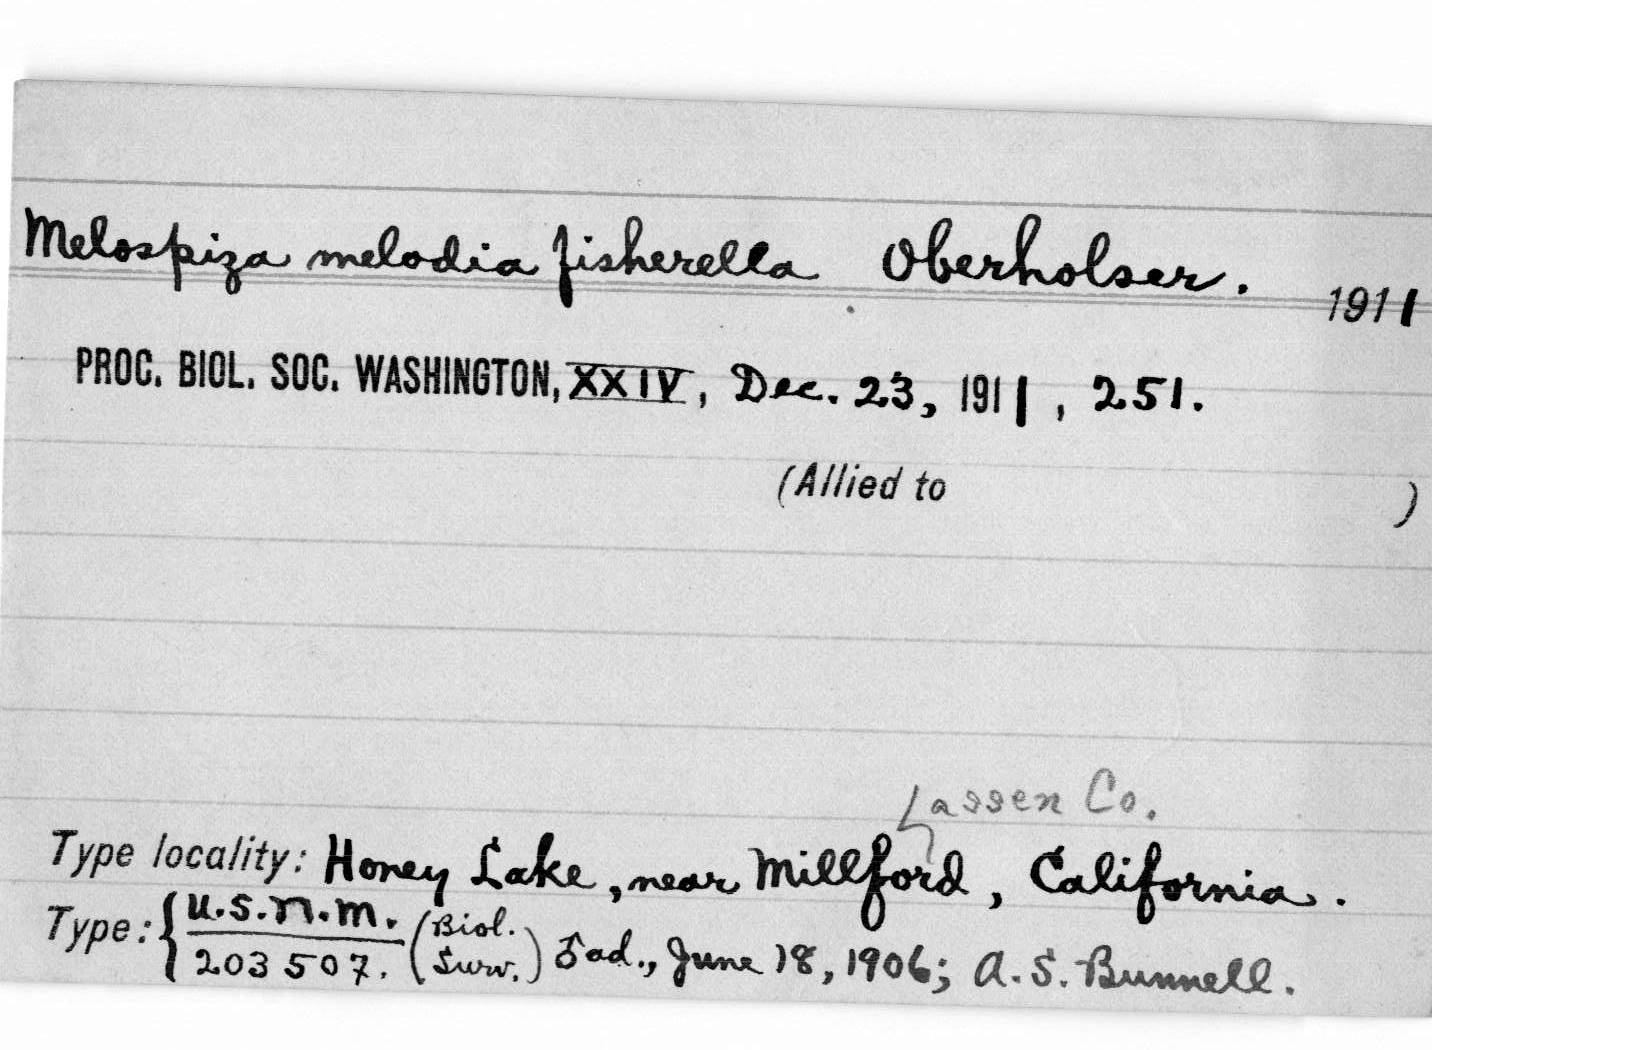 Melospiza melodia fisherella Oberholser. 1911
PROC. BIOL. SOC. WASHINGTON, XXIV, Dec. 23, 1911, 251.
(Allied to )
Lassen Co.
Type locality: Honey Lake, near Millford, California.
Type: { U.S.N.M. (Biol.
203507. Surv.) ♂ ad., June 18, 1906; A. S. Bunnell.